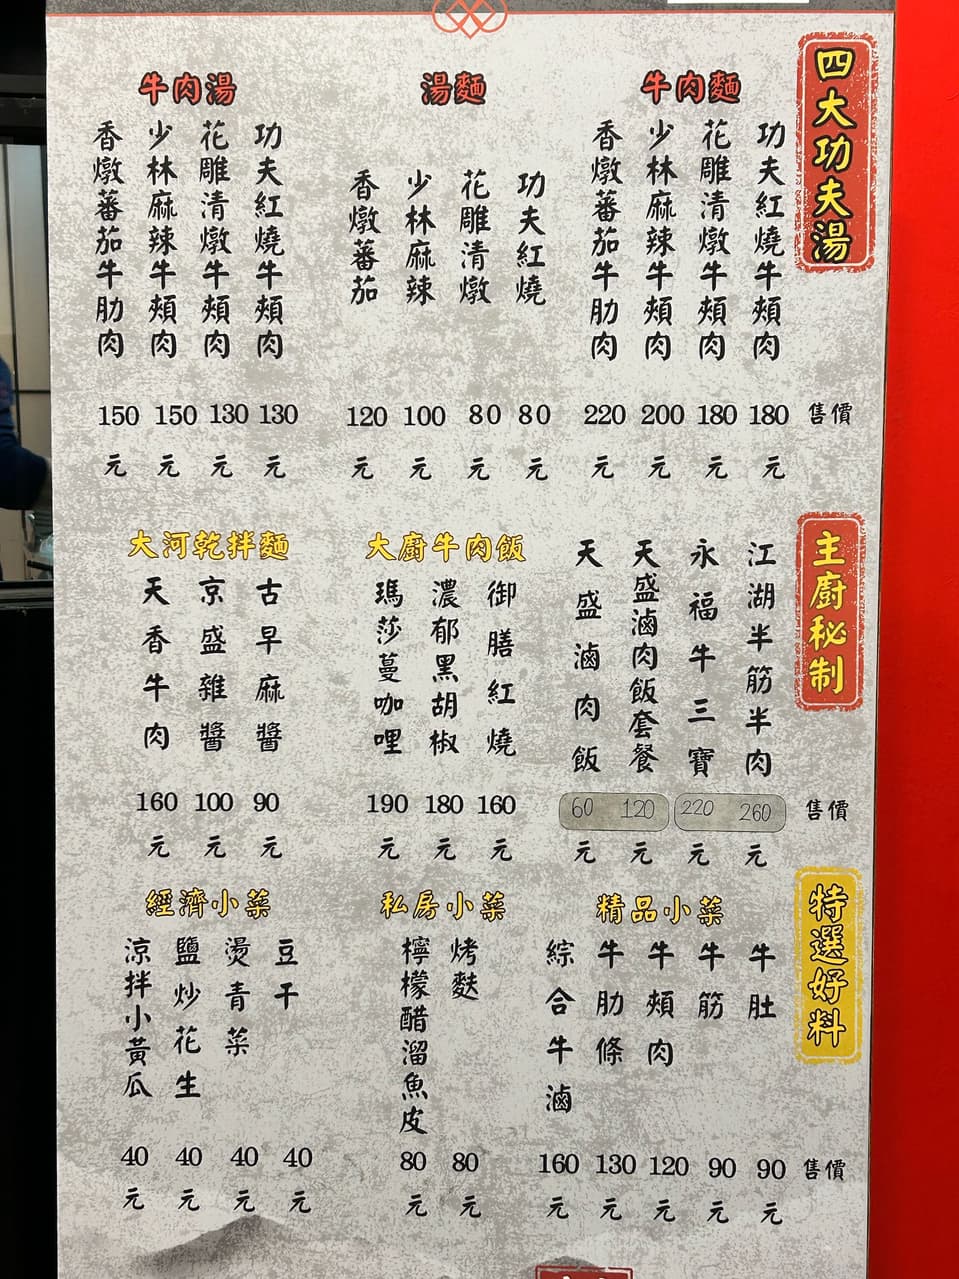 四大功夫湯
牛肉麵
功夫紅燒牛頰肉
花雕清燉牛頰肉
少林麻辣牛頰肉
香燉蕃茄牛肋肉
湯麵
功夫紅燒
花雕清燉
少林麻辣
香燉蕃茄
牛肉湯
功夫紅燒牛頰肉
花雕清燉牛頰肉
少林麻辣牛頰肉
香燉蕃茄牛肋肉
售價
180元
180元
200元
220元
80元
80元
100元
120元
130元
130元
150元
150元
主廚秘制
江湖半筋半肉
永福牛三寶
天盛滷肉飯套餐
天盛滷肉飯
大廚牛肉飯
御膳紅燒
濃郁黑胡椒
瑪莎蔓咖哩
大河乾拌麵
古早麻醬
京盛雜醬
天香牛肉
售價
260元
220元
120元
60元
160元
180元
190元
90元
100元
160元
特選好料
精品小菜
牛肚
牛筋
牛頰肉
牛肋條
綜合牛滷
私房小菜
烤麩
檸檬醋溜魚皮
經濟小菜
豆干
燙青菜
鹽炒花生
涼拌小黃瓜
售價
90元
90元
120元
130元
160元
80元
80元
40元
40元
40元
40元